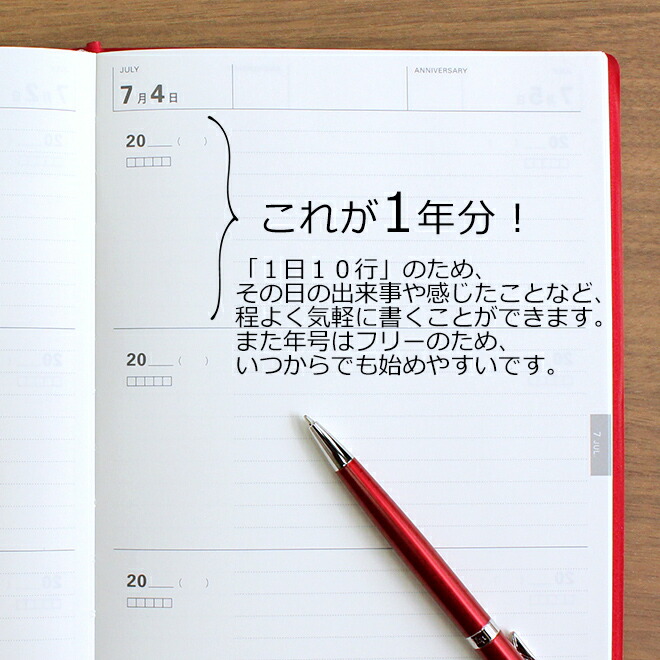 JULY
7月4日
ANNIVERSARY
20__（　）
これが1年分！
「１日１０行」のため、
その日の出来事や感じたことなど、
程よく気軽に書くことができます。
また年号はフリーのため、
いつからでも始めやすいです。
20__（　）
7 JUL.
20__（　）